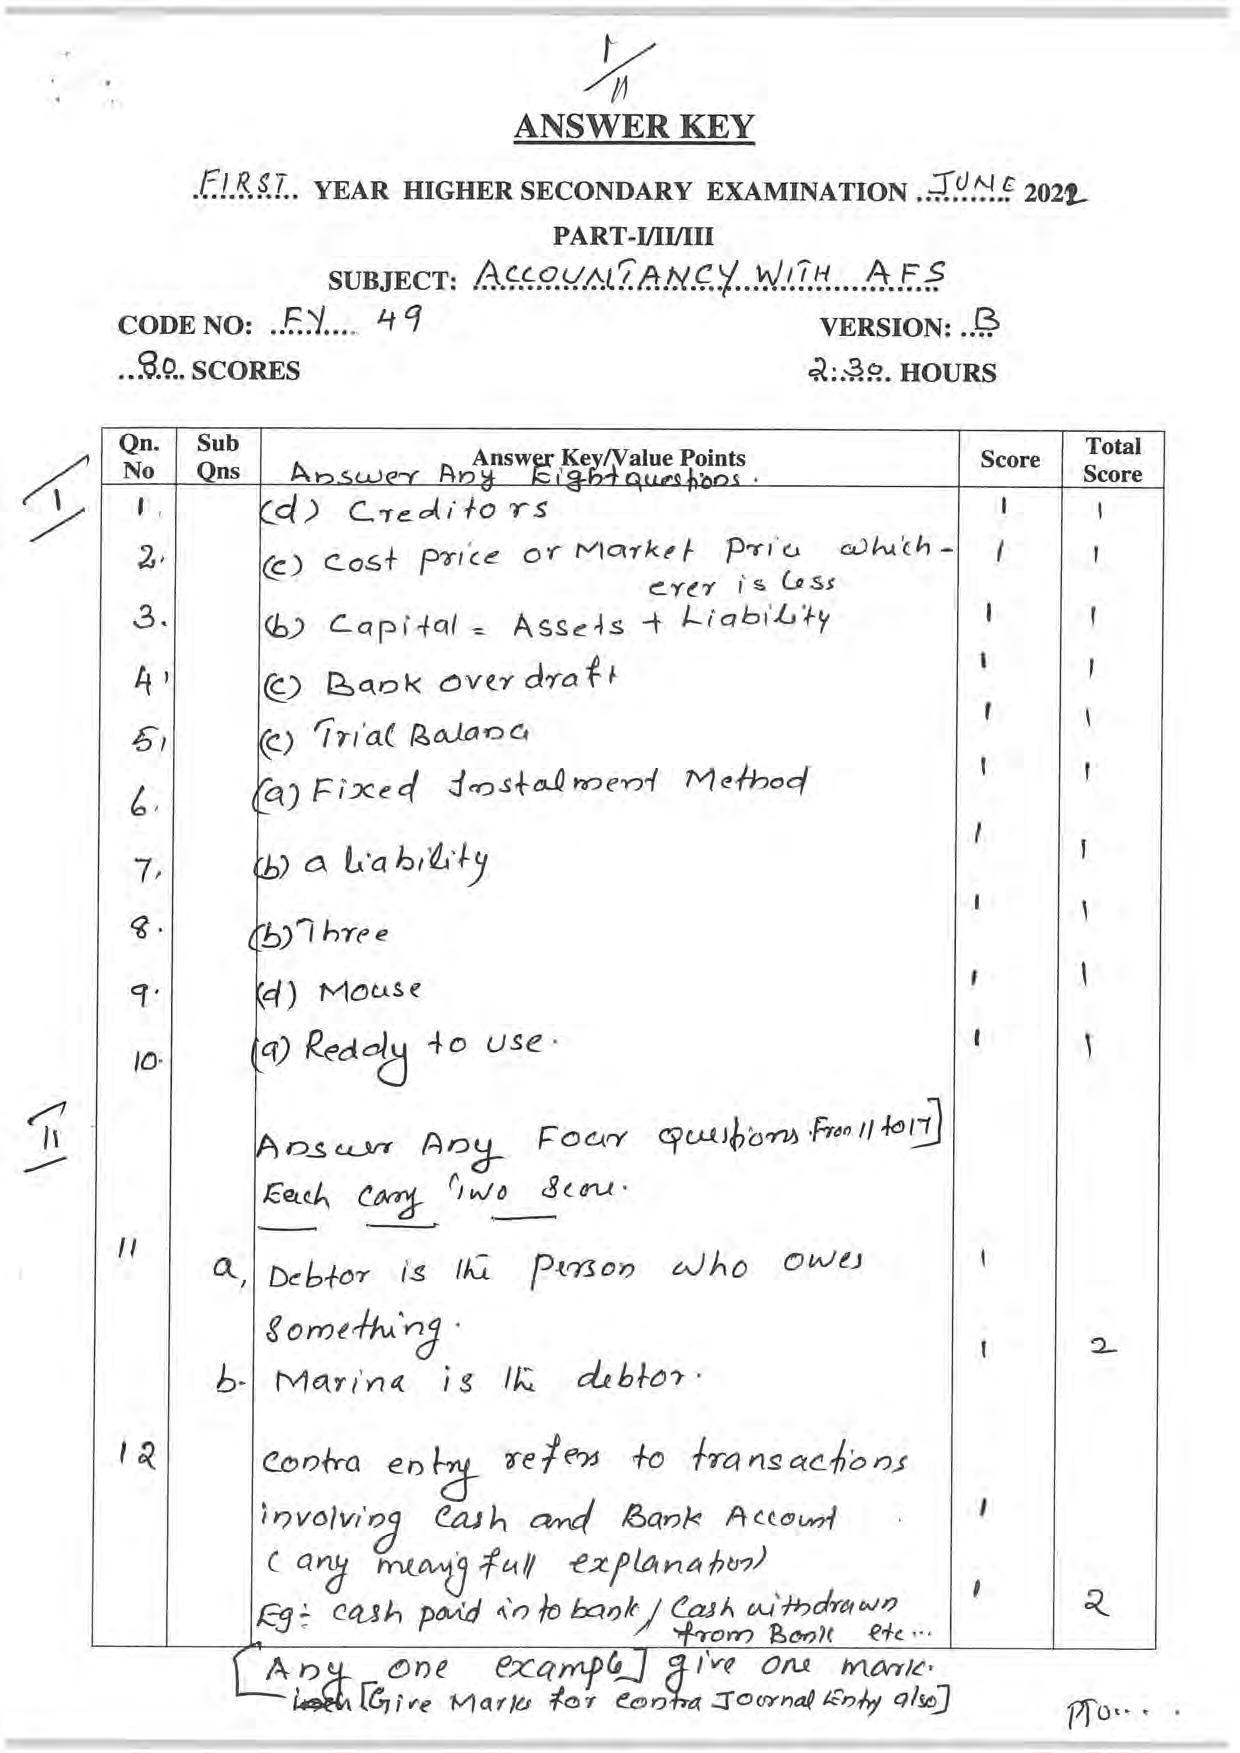 I/11
ANSWER KEY
FIRST YEAR HIGHER SECONDARY EXAMINATION JUNE 2022
PART-I/II/III
SUBJECT: ACCOUNTANCY WITH AFS
CODE NO: FY 49 VERSION: B
80 SCORES 2:30 HOURS
Qn. No Sub Qns Answer Key/Value Points Score Total Score
I Answer Any Eight questions.
1. (d) Creditors 1 1
2. (c) Cost price or Market Price which- 1 1
ever is less
3. (b) Capital = Assets + Liability 1 1
4. (c) Bank overdraft 1 1
5. (c) Trial Balance 1 1
6. (a) Fixed Instalment Method 1 1
7. (b) a liability 1 1
8. (b) Three 1 1
9. (d) Mouse 1 1
10. (a) Reddy to use. 1 1
II Answer Any Four questions From 11 to 17]
Each Carry Two Score.
11 a, Debtor is the person who owes 1
something.
b. Marina is the debtor. 1 2
12 Contra entry refers to transactions
involving Cash and Bank Account 1
(any meanigfull explanation)
Eg:- cash paid in to bank / Cash withdrawn 1 2
from Bank etc...
[Any one example] give one mark.
[Give Marks for contra Journal Entry also]
PTO....